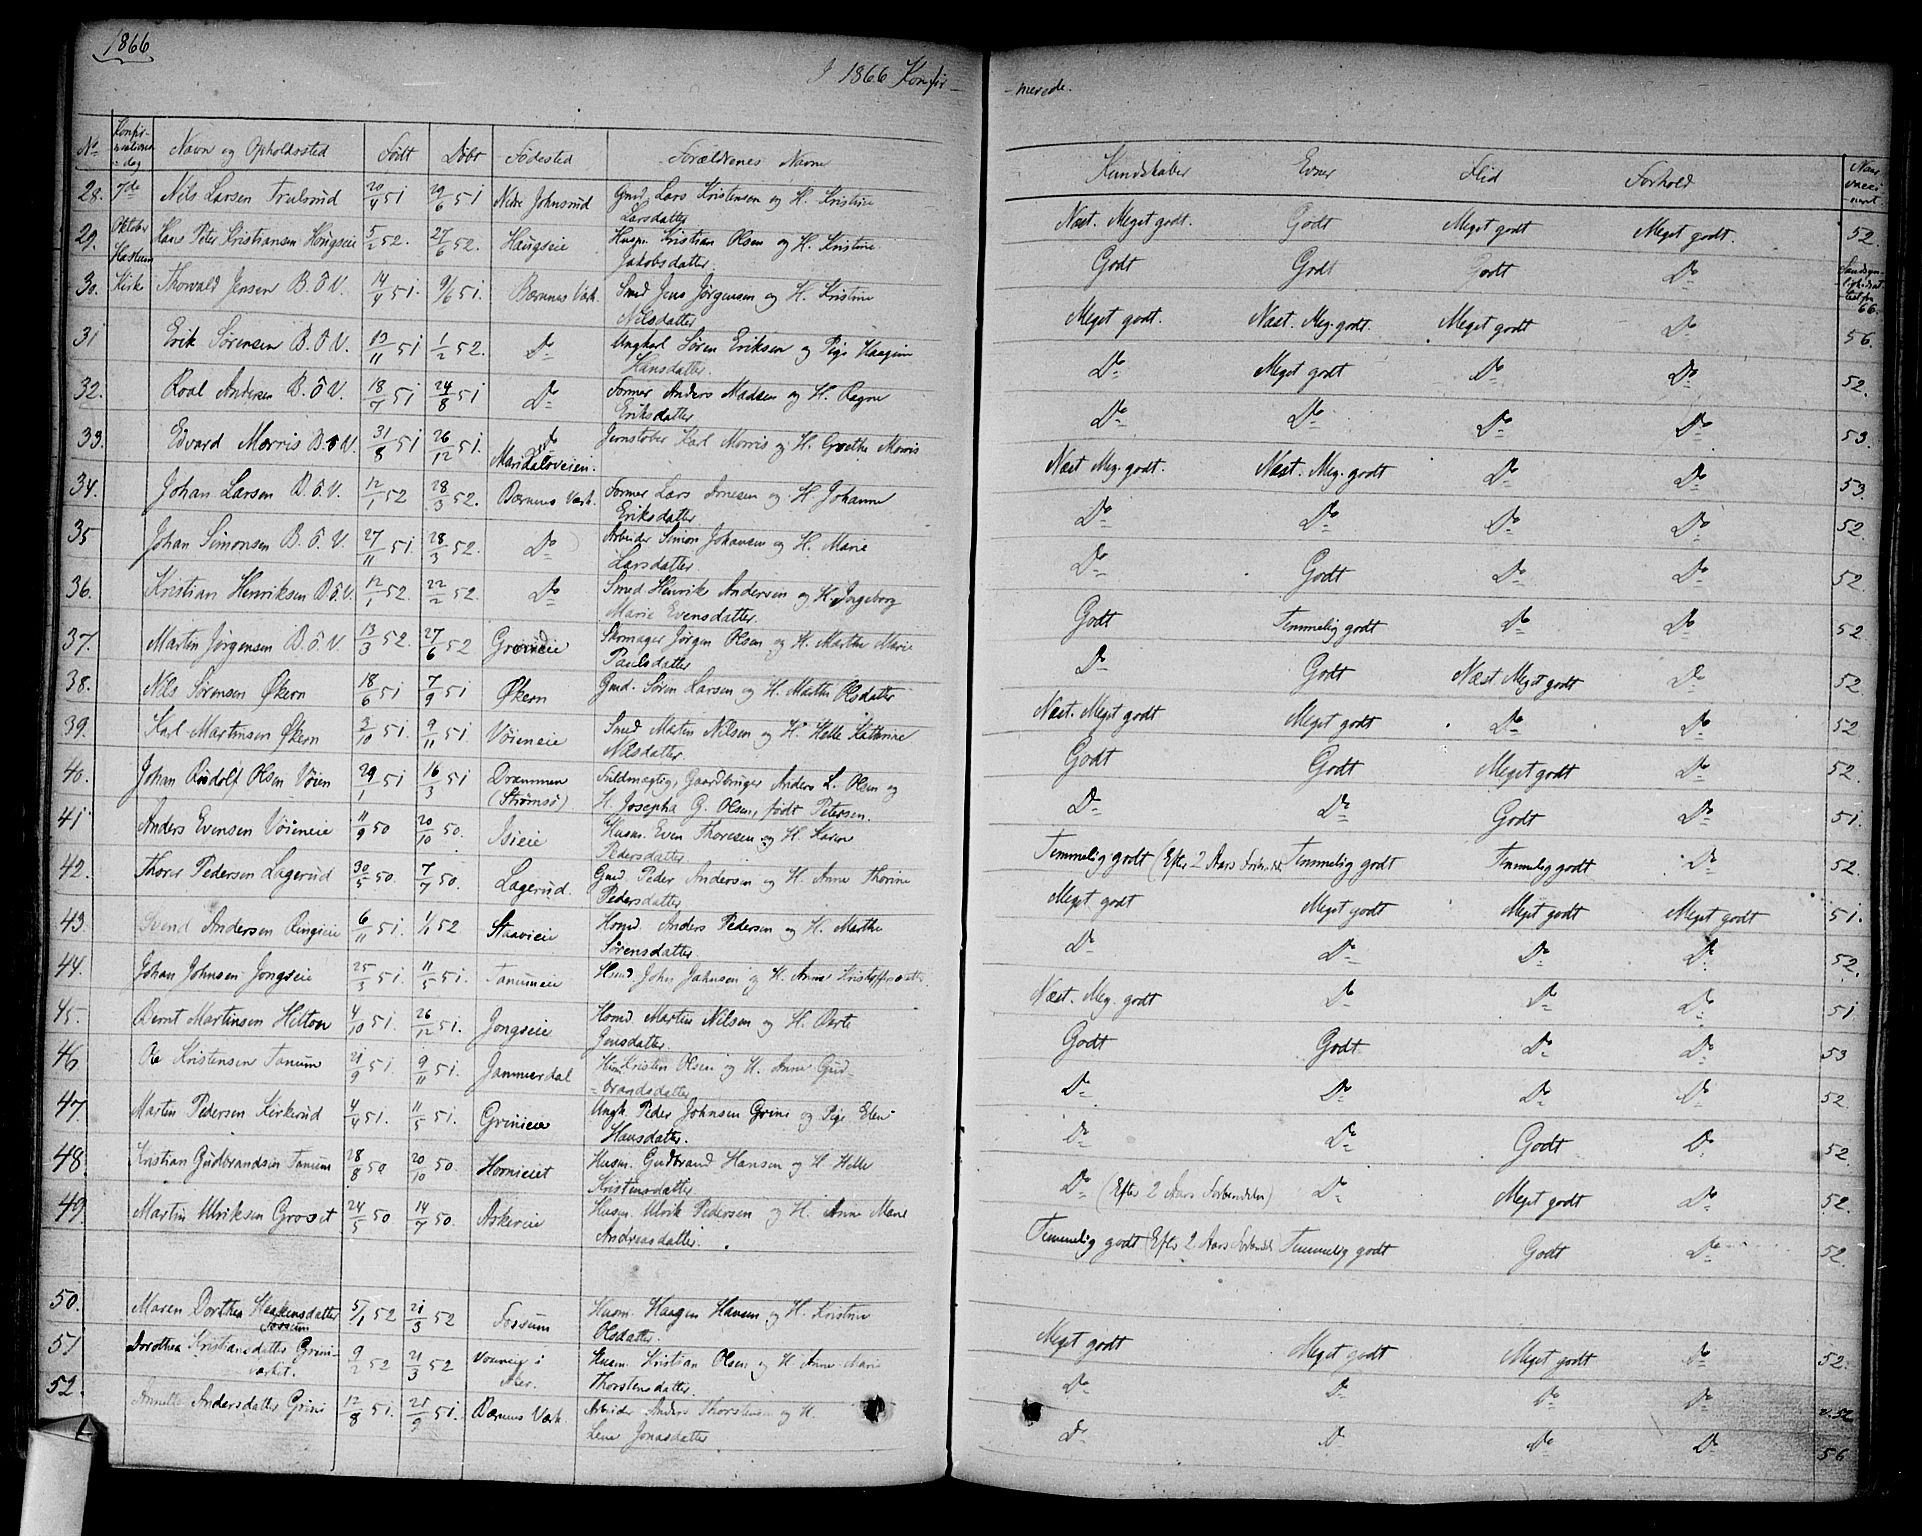 1866
I 1866 Konfir-
-merede.
No Konfir-mations-dag Navn og Opholdssted Født Døbt Fødested Forældrenes Navne
Kundskaber Evner Flid Forhold
28. 7de Nils Larsen Trulsrud 20/4 51 29/6 51 Nedre Johnsrud Gmd. Lars Kristensen og H. Kristine
Larsdatter
Næst. Meget godt. Godt Meget godt Meget godt. 52.
29. Oktober Hans Peter Kristiansen Hougseie 5/2 52. 27/6 52. Haugseie Husm. Kristian Olsen og H. Kristine
Haslum Jakobsdatter.
Godt Godt Godt Do
30. Kirke Thorvald Jensen B.Ö.V. 14/4 51. 9/6 51. Bærums Værk. Smed Jens Jörgensen og H. Kristine
Nilsdatter
66.
Meget godt. Næst. Meg. godt. Meget godt Do 56.
31 Erik Sörensen B.Ö.V. 13/11 51 1/2 52. Do Ungkarl Sören Eriksen og Pige Haagine
Hansdatter.
Do Meget godt Do Do 52.
32. Roal Andersen B.Ö.V. 18/7 51 24/8 51 Do Former Anders Madsen og H. Regne
Eriksdatter
Do Do Do Do 53.
33. Edvard Morris B.Ö.V. 31/8 51 26/12 51. Do Jernstöber Karl Morris og H. Grethe Morris
Maridalsveien.
Næst Meg. godt. Næst. Meg. godt Do Do 53.
34. Johan Larsen B.Ö.V. 12/1 52 28/3 52. Bærums Værk. Former Lars Arnesen og H. Johanne
Eriksdatter
Do Do Do Do 52.
35 Johan Simonsen B.Ö.V. 27/11 51. 28/3 52. Do Arbeider Simon Johansen og H. Marie
Larsdatter
Do Godt Do Do 52.
36. Kristian Henriksen B.Ö.V. 12/1 52. 22/2 52. Do Smed Henrik Andersen og H. Ingeborg
Marie Evensdatter.
Godt Temmelig godt Do Do 52.
37. Martin Jörgensen B.Ö.V. 13/3 52. 27/6 52 Skomager Jörgen Olsen og H. Marthe Marie
Paulsdatter
Do Godt Næst. Meget godt Do 52.
38. Nils Sörensen Økern 18/6 51 7/9 51 Økern Gmd. Sören Larsen og H. Marthe Olsdatter
Næst. Meget godt Meget godt Do Do 52
39. Karl Martinsen Økern 3/10 51 9/11 51 Vöieneie Smed Martin Nilsen og H. Helle Kathrine
Nilsdatter.
Godt Godt Meget godt Do 52.
40. Johan Rudolf Olsen Vöien 29/1 51 16/3 51 Drammen Fuldmægtig, Gaardbruger Anders L. Olsen og
(Strömsö) H. Josepha G. Olsen, födt Petersen.
Do Do Godt Do 51.
41. Anders Evensen Vöieneie 11/9 50 20/10 50. Isieie Husm. Even Thoresen og H. Karen
Pedersdatter.
Temmelig godt (Efter 2 Aars Forberedelse) Temmelig godt Temmelig godt Do 52.
42. Thorer Pedersen Lagerud 30/5 50. 7/7 50. Lagerud. Gmd. Peder Andersen og H. Anne Thorine
Pedersdatter
Meget godt Meget godt Meget godt Meget godt 51.
43. Svend Andersen Ringieie 6/11 51. 1/1 52 Staavieie Homd. Anders Pedersen og H. Marthe
Sörensdatter
Do Do Do Do 52.
44. Johan Johnsen Jongseie 25/3 51. 11/5 51. Tanumeie Hsmd. John Johnsen og H. Anne
Næst. Meg. godt Do Do Do 51.
45. Bernt Martinsen Hilton 4/10 51. 26/12 51. Jongseie Homd. Martin Nilsen og H. Berte
Jensdatter.
Godt Godt Do Do 53
46 Ole Kristensen Tanum 21/9 51. 9/11 51. Jammerdal Kristen Olsen og H. Anne Gud-
-brandsdatter
Do Do Do Do 52.
47. Martin Pedersen Kirkerud 4/4 51. 11/5 51. Grinieie Ungk. Peder Johnsen Grini og Pige Elen
Hansdatter.
Do Do Godt Do 52.
48. Kristian Gudbrandsen Tanum 28/8 50 20/10 50. Hornieiet Husm. Gudbrand Hansen og H. Helle
Kristinsdatter
Do (Efter 2 Aars Forberedelse) Do Meget godt Do 52.
49. Martin Ulriksen Groset 24/5 50 14/7 50. Askereie Husm. Ulrik Pedersen og H. Anne Marie
Andreasdatter.
Temmelig godt (Efter 2 Aars Forberedelse) Temmelig godt Godt Do 52.
50. Maren Dorthea Haakensdatter 5/1 52 21/3 52 Fossum Husm. Haagen Hansen og H. Kristine
Fossum Olsdatter.
Meget godt Meget godt Meget godt Do 52.
51 Dorothea Kristiansdatter Grini- 9/2 52 21/3 52 i Husm. Kristian Olsen og H. Anne Marie
værket. Aker. Thorstensdatter.
Do Do Do Do v. 52
52. Annette Andersdatter Grini 12/8 51. 21/9 51. Bærums Værk. Arbeider Anders Thorstensen og H.
Lene Jonasdatter
Do Do Do Do 56